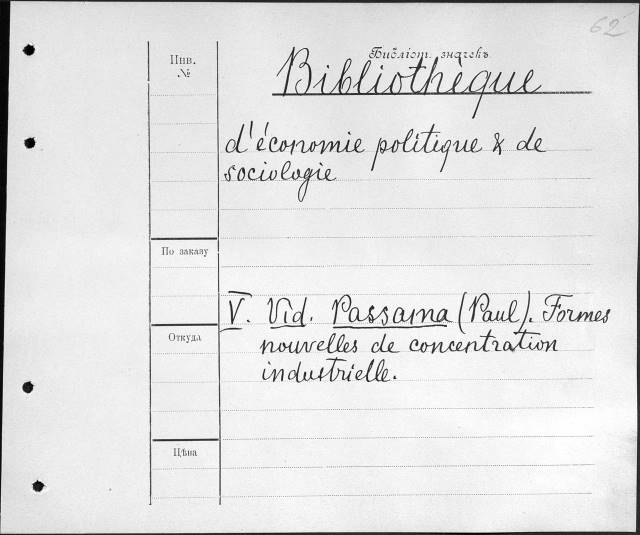 62
Инв.
№
Библіот. значекъ
Bibliothèque
d'économie politique & de
sociologie
По заказу
V. Vid. Passama (Paul). Formes
nouvelles de concentration
industrielle.
Откуда
Цѣна